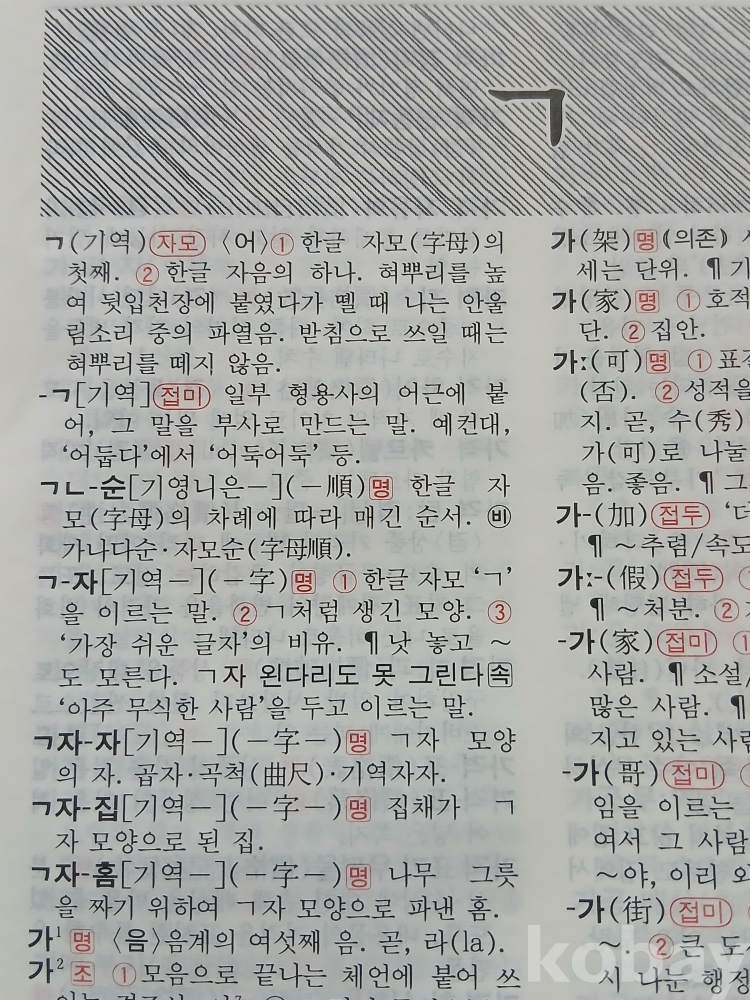 ㄱ
ㄱ(기역)자모〈어〉①한글 자모(字母)의
첫째. ②한글 자음의 하나. 혀뿌리를 높
여 뒷입천장에 붙였다가 뗄 때 나는 안울
림소리 중의 파열음. 받침으로 쓰일 때는
혀뿌리를 떼지 않음.
-ㄱ[기역]접미 일부 형용사의 어근에 붙
어, 그 말을 부사로 만드는 말. 예컨대,
‘어둡다’에서 ‘어둑어둑’ 등.
ㄱㄴ-순[기영니은―](―順)명 한글 자
모(字母)의 차례에 따라 매긴 순서. ㉥
가나다순·자모순(字母順).
ㄱ-자[기역―](―字)명 ①한글 자모 ‘ㄱ’
을 이르는 말. ②ㄱ처럼 생긴 모양. ③
‘가장 쉬운 글자’의 비유. ¶낫 놓고 ～
도 모른다. ㄱ자 왼다리도 못 그린다속
‘아주 무식한 사람’을 두고 이르는 말.
ㄱ자-자[기역―](―字―)명 ㄱ자 모양
의 자. 곱자·곡척(曲尺)·기역자자.
ㄱ자-집[기역―](―字―)명 집채가 ㄱ
자 모양으로 된 집.
ㄱ자-홈[기역―](―字―)명 나무 그릇
을 짜기 위하여 ㄱ자 모양으로 파낸 홈.
가¹ 명 〈음〉음계의 여섯째 음. 곧, 라(la).
가² 조 ①모음으로 끝나는 체언에 붙어 쓰
가(架)명(의존)
세는 단위. ¶
가(家)명 ①호적
단. ②집안.
가ː(可)명 ①
(否). ②성적을
지. 곧, 수(秀)
가(可)로 나눌
음. 좋음. ¶그
가-(加)접두 ‘
¶～추렴/속도
가ː-(假)접두 ①
¶～처분. ②
-가(家)접미
사람. ¶소설/
많은 사람. ¶
지고 있는 사람
-가(哥)접미
임을 이르는
여서 그 사람
～야, 이리
-가(街)접미
～ ②큰 도
시 나눈 행정
kobay